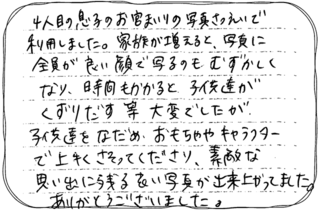 4人目の息子のお宮まいりの写真さつえいで
利用しました。家族が増えると、写真に
全員が良い顔で写るのも むずかしく
なり、時間もかかると 子供達が
くずりだす 等 大変でしたが
子供達をなだめ、おもちゃや キャラクター
で上手く さそってくださり、素敵な
思い出に残る良い写真が出来上がってました。
ありがとうございました。